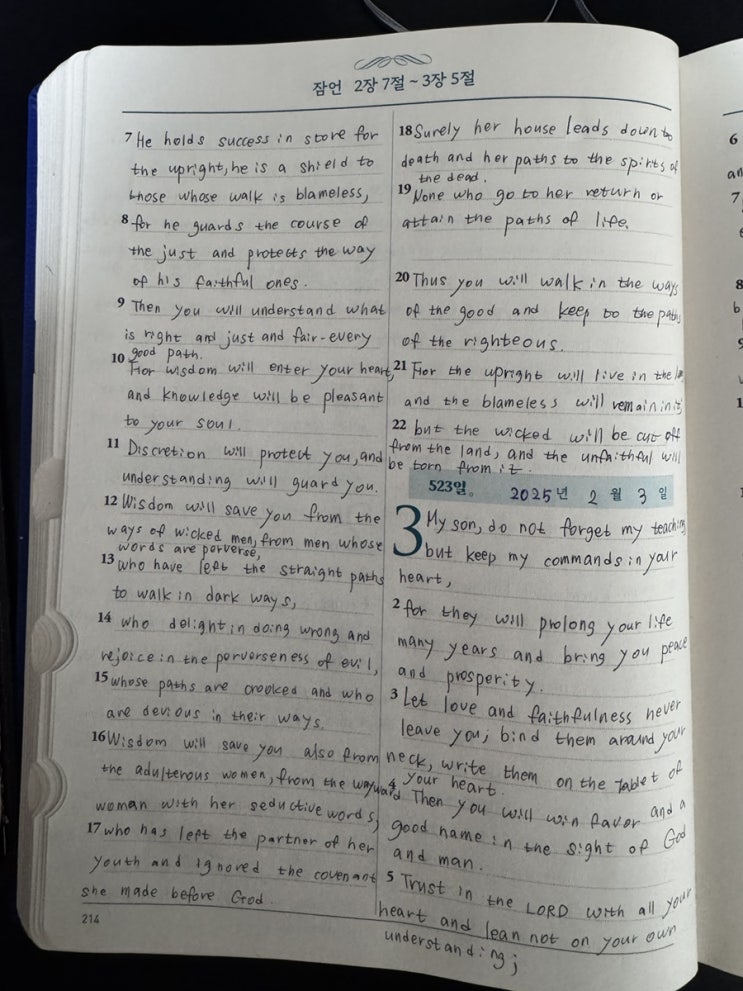 잠언 2장 7절 ~ 3장 5절
7 He holds success in store for
the upright, he is a shield to
those whose walk is blameless,
8 for he guards the course of
the just and protects the way
of his faithful ones.
9 Then you will understand what
is right and just and fair-every
good path.
10 For wisdom will enter your heart,
and knowledge will be pleasant
to your soul.
11 Discretion will protect you, and
understanding will guard you.
12 Wisdom will save you from the
ways of wicked men, from men whose
words are perverse,
13 who have left the straight paths
to walk in dark ways,
14 who delight in doing wrong and
rejoice in the perverseness of evil,
15 whose paths are crooked and who
are devious in their ways.
16 Wisdom will save you also from
the adulterous women, from the wayward
woman with her seductive words,
17 who has left the partner of her
youth and ignored the covenant
she made before God.
214
18 Surely her house leads down to
death and her paths to the spirits of
the dead.
19 None who go to her return or
attain the paths of life.
20 Thus you will walk in the ways
of the good and keep to the paths
of the righteous.
21 For the upright will live in the
and the blameless will remain in it
22 but the wicked will be cut off
from the land, and the unfaithful will
be torn from it.
523일。 2025년 2월 3일
3 My son, do not forget my teaching
but keep my commands in your
heart,
2 for they will prolong your life
many years and bring you peace
and prosperity.
3 Let love and faithfulness never
leave you; bind them around your
neck, write them on the tablet of
your heart.
4 Then you will win favor and a
good name in the sight of God
and man.
5 Trust in the LORD with all your
heart and lean not on your own
understanding;
6
an
7
8
b
9
1